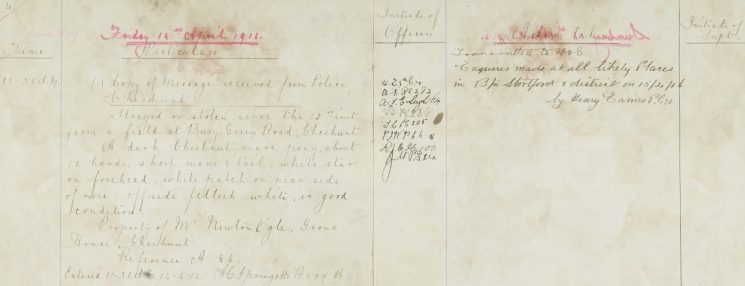 4.
Friday 14th April 1916.
Initials of
Officer
Action taken
Initials of
Supt.
Time
Particulars
11-30 A.M.
(1) Copy of Message received from Police
Cheshunt
Strayed or stolen since the 12th inst.
from a field at Bury Green Road, Cheshunt
A dark Chestnut mare pony, about
10 hands, short mane & tail, white star
on forehead, white patch on near side
of nose, off side fetlock white, in good
condition.
Property of Mr Newton Ogle, Grove
House, Cheshunt.
Reference A. 86.
Entered 11-30 A.M. 14-4-16. A C Springett
Enquiries made at all likely Places
in B/p Stortford & district on 15/4/16
by Henry Eames P.C.